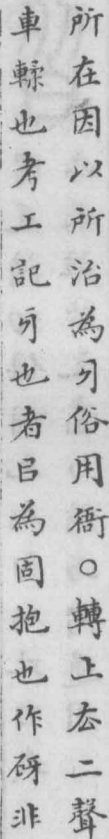 所在因以所治為㸦俗用衙○轉上𠫓二聲
車輮也考工記㸦也者㠯為固抱也作砑非